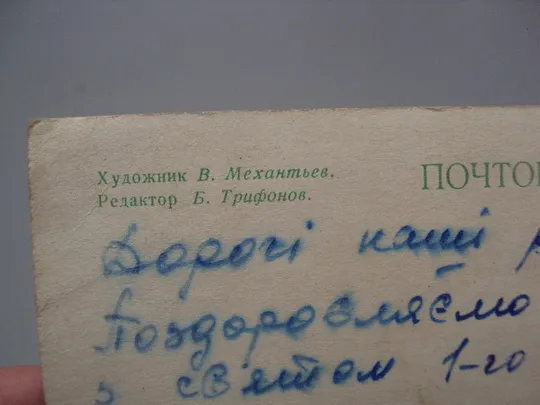 Художник В. Механтьев.
Редактор Б. Трифонов.
ПОЧТО
Дорогі наші
Поздоровляємо
з святом 1-го